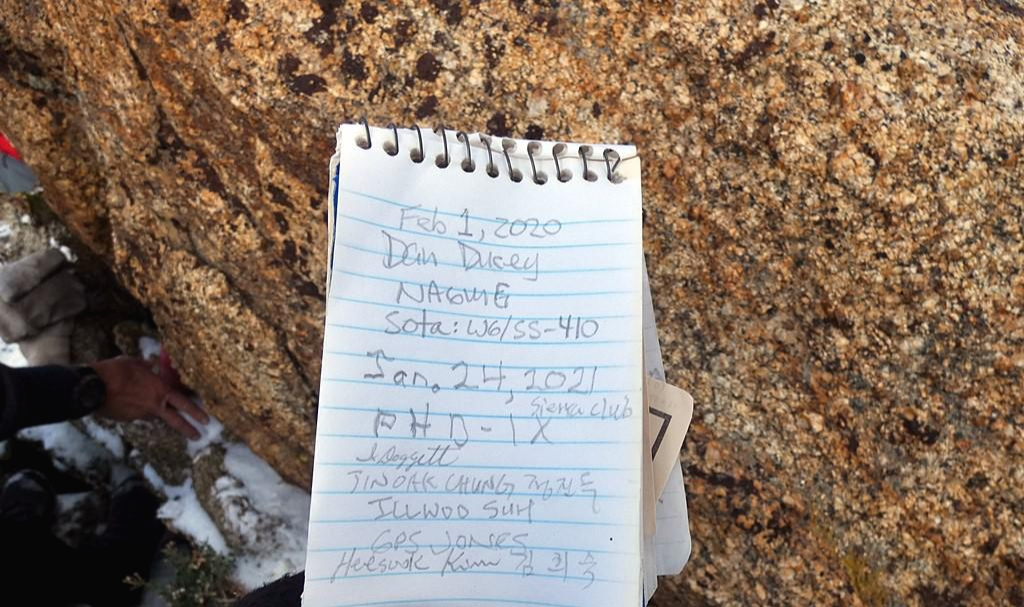 Feb 1, 2020
Dan Ducey
NA6WE
Sota: W6/SS-410
Jan. 24, 2021
Sierra Club
PHD-1X
Doggett
JINOAK CHUNG 정진옥
ILLWOO SUH
GPS JONES
Heesook Kim 김희숙
7